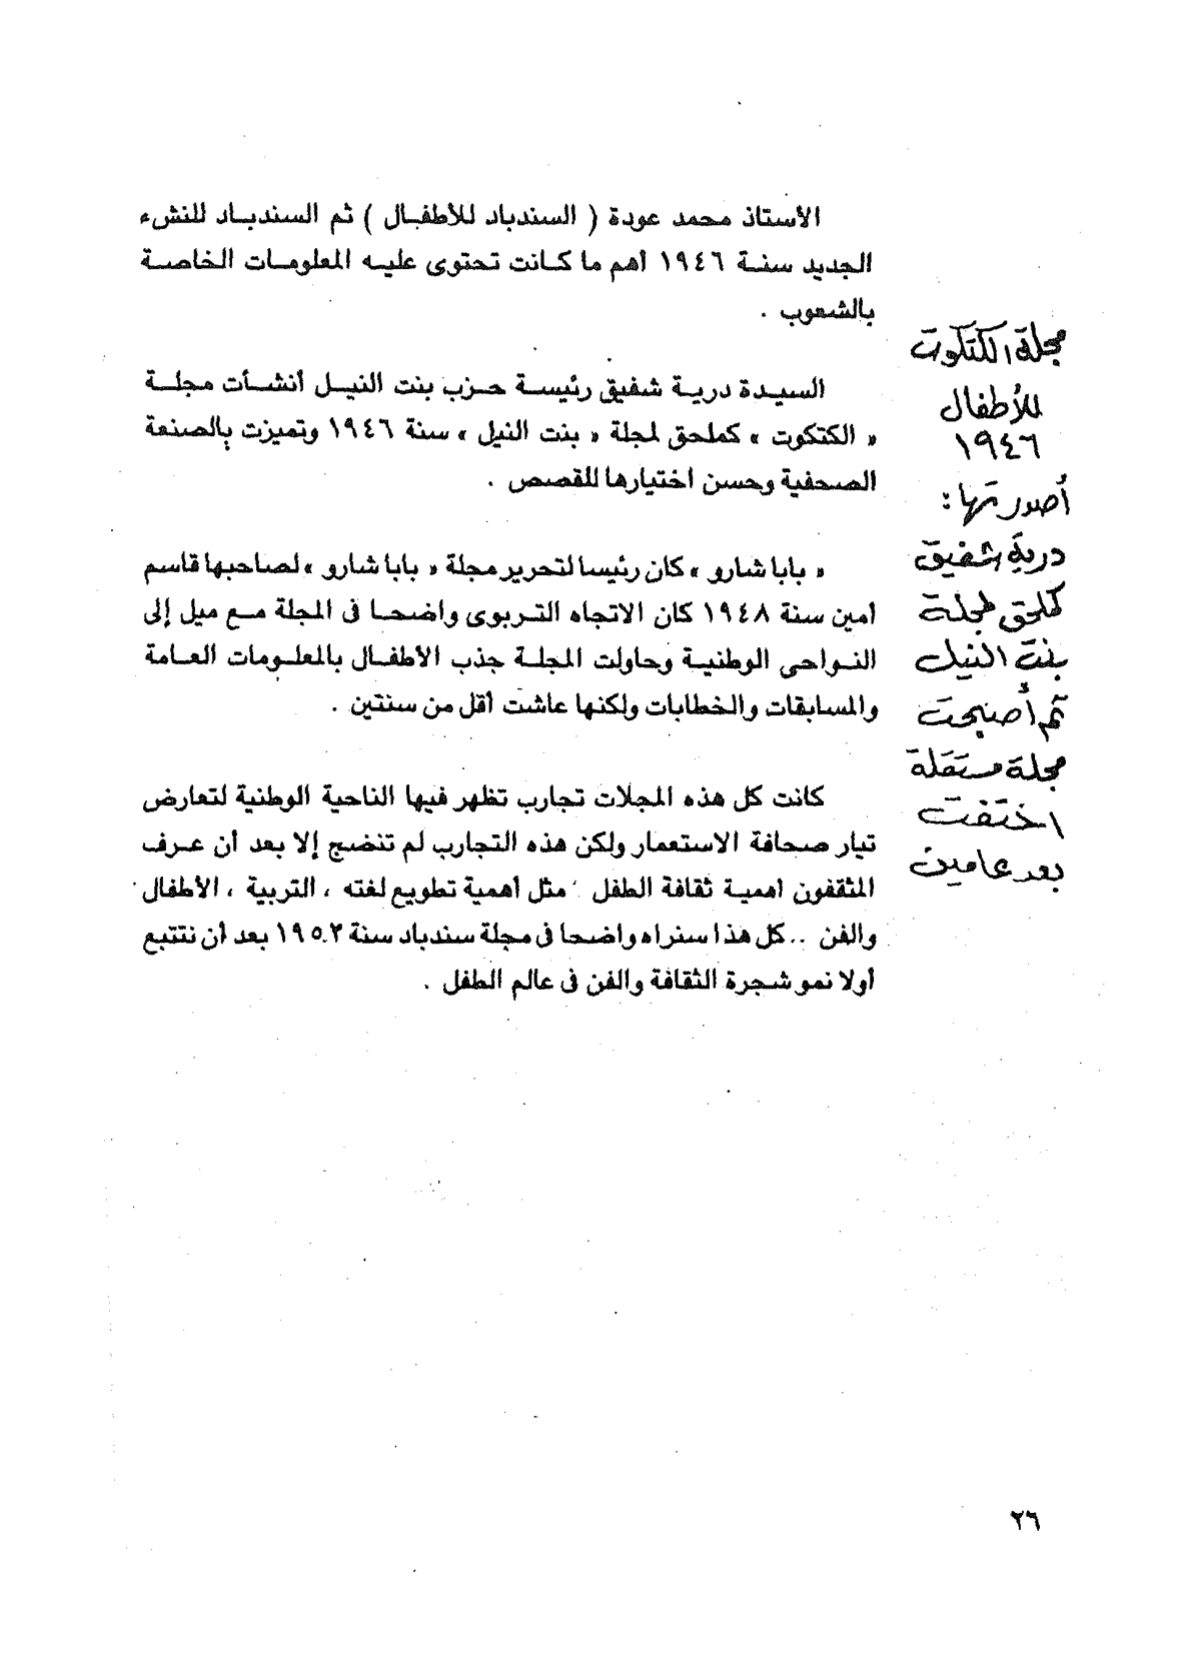 الأستاذ محمد عودة ( السندباد للأطفال ) ثم السندباد للنشء
الجديد سنة ١٩٤٦ أهم ما كانت تحتوى عليه المعلومات الخاصة
بالشعوب .
السيدة درية شفيق رئيسة حزب بنت النيل أنشأت مجلة
« الكتكوت » كملحق لمجلة « بنت النيل » سنة ١٩٤٦ وتميزت بالصنعة
الصحفية وحسن اختيارها للقصص .
« بابا شارو » كان رئيسا لتحرير مجلة « بابا شارو » لصاحبها قاسم
أمين سنة ١٩٤٨ كان الاتجاه التربوى واضحا فى المجلة مع ميل إلى
النواحى الوطنية وحاولت المجلة جذب الأطفال بالمعلومات العامة
والمسابقات والخطابات ولكنها عاشت أقل من سنتين .
كانت كل هذه المجلات تجارب تظهر فيها الناحية الوطنية لتعارض
تيار صحافة الاستعمار ولكن هذه التجارب لم تنضج إلا بعد أن عرف
المثقفون أهمية ثقافة الطفل مثل أهمية تطويع لغته ، التربية ، الأطفال
والفن .. كل هذا سنراه واضحا فى مجلة سندباد سنة ١٩٥٢ بعد أن نتتبع
أولا نمو شجرة الثقافة والفن فى عالم الطفل .
مجلة الكتكوت
للأطفال
١٩٤٦
أصدرتها :
درية شفيق
كملحق لمجلة
بنت النيل
ثم أصبحت
مجلة مستقلة
اختفت
بعد عامين
٢٦